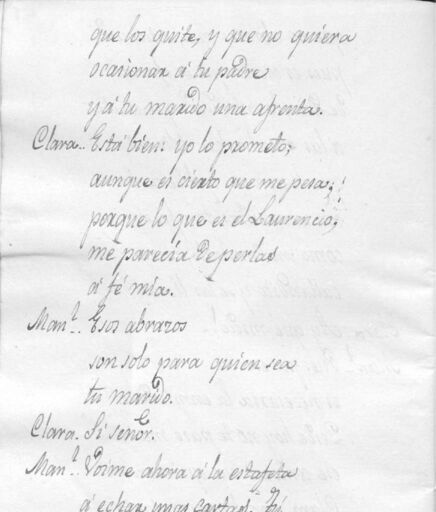 que los quite, y que no quiera
ocasionar á tu padre
y á tu marido una afrenta.
Clara.. Está bien: yo lo prometo;
aunque es cierto que me pesa;
porque lo que es el Laurencio,
me parecía de perlas
á fé mía.
Man.l.. Esos abrazos
son solo para quien sea
tu marido.
Clara. Si señor.
Man.l.. Voime ahora á la estafeta
á echar unas cartas: tú